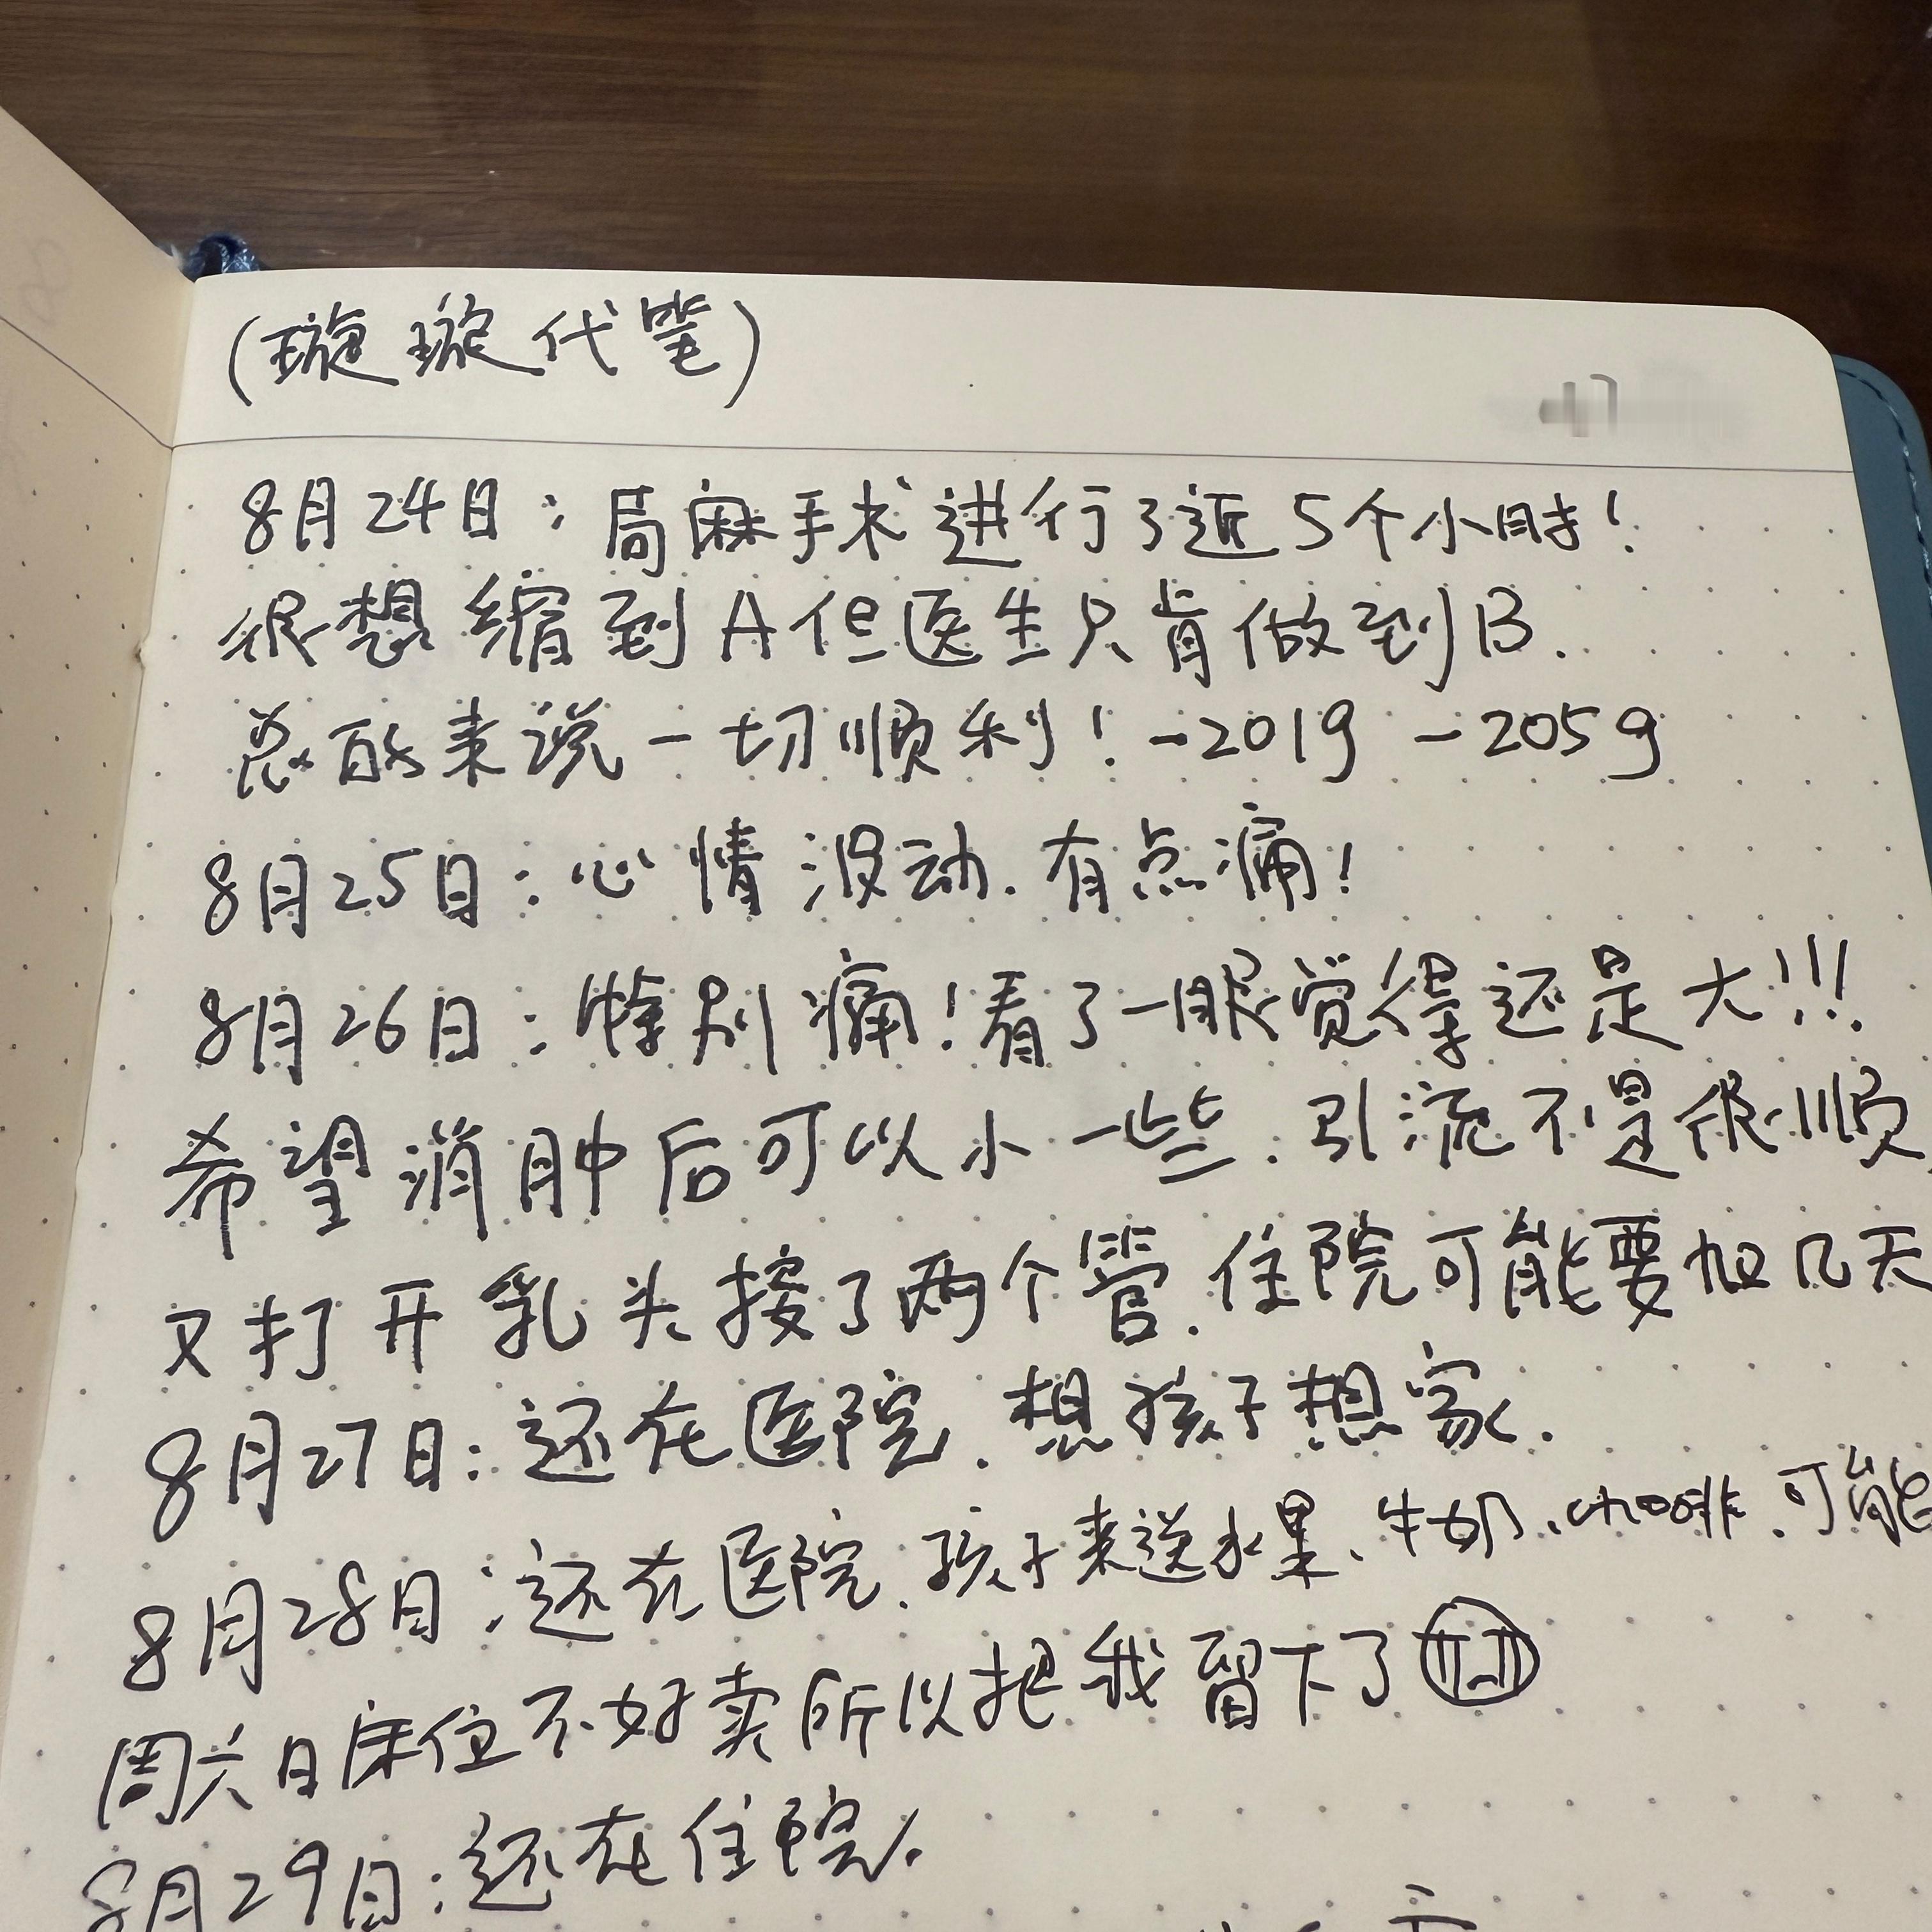 (璇璇代笔)
8月24日：局麻手术进行了近5个小时！
很想缩到A但医生只肯做到B.
总的来说一切顺利！-201g -205g
8月25日：心情波动.有点痛！
8月26日：特别痛！看了一眼觉得还是大!!!
希望消肿后可以小一些.引流不是很顺
又打开乳头接了两个管.住院可能要加几天
8月27日：还在医院.想孩子想家.
8月28日：还在医院.孩子来送水果、牛奶、咖啡.可能
周六日床位不好卖所以把我留下了
8月29日：还在住院.